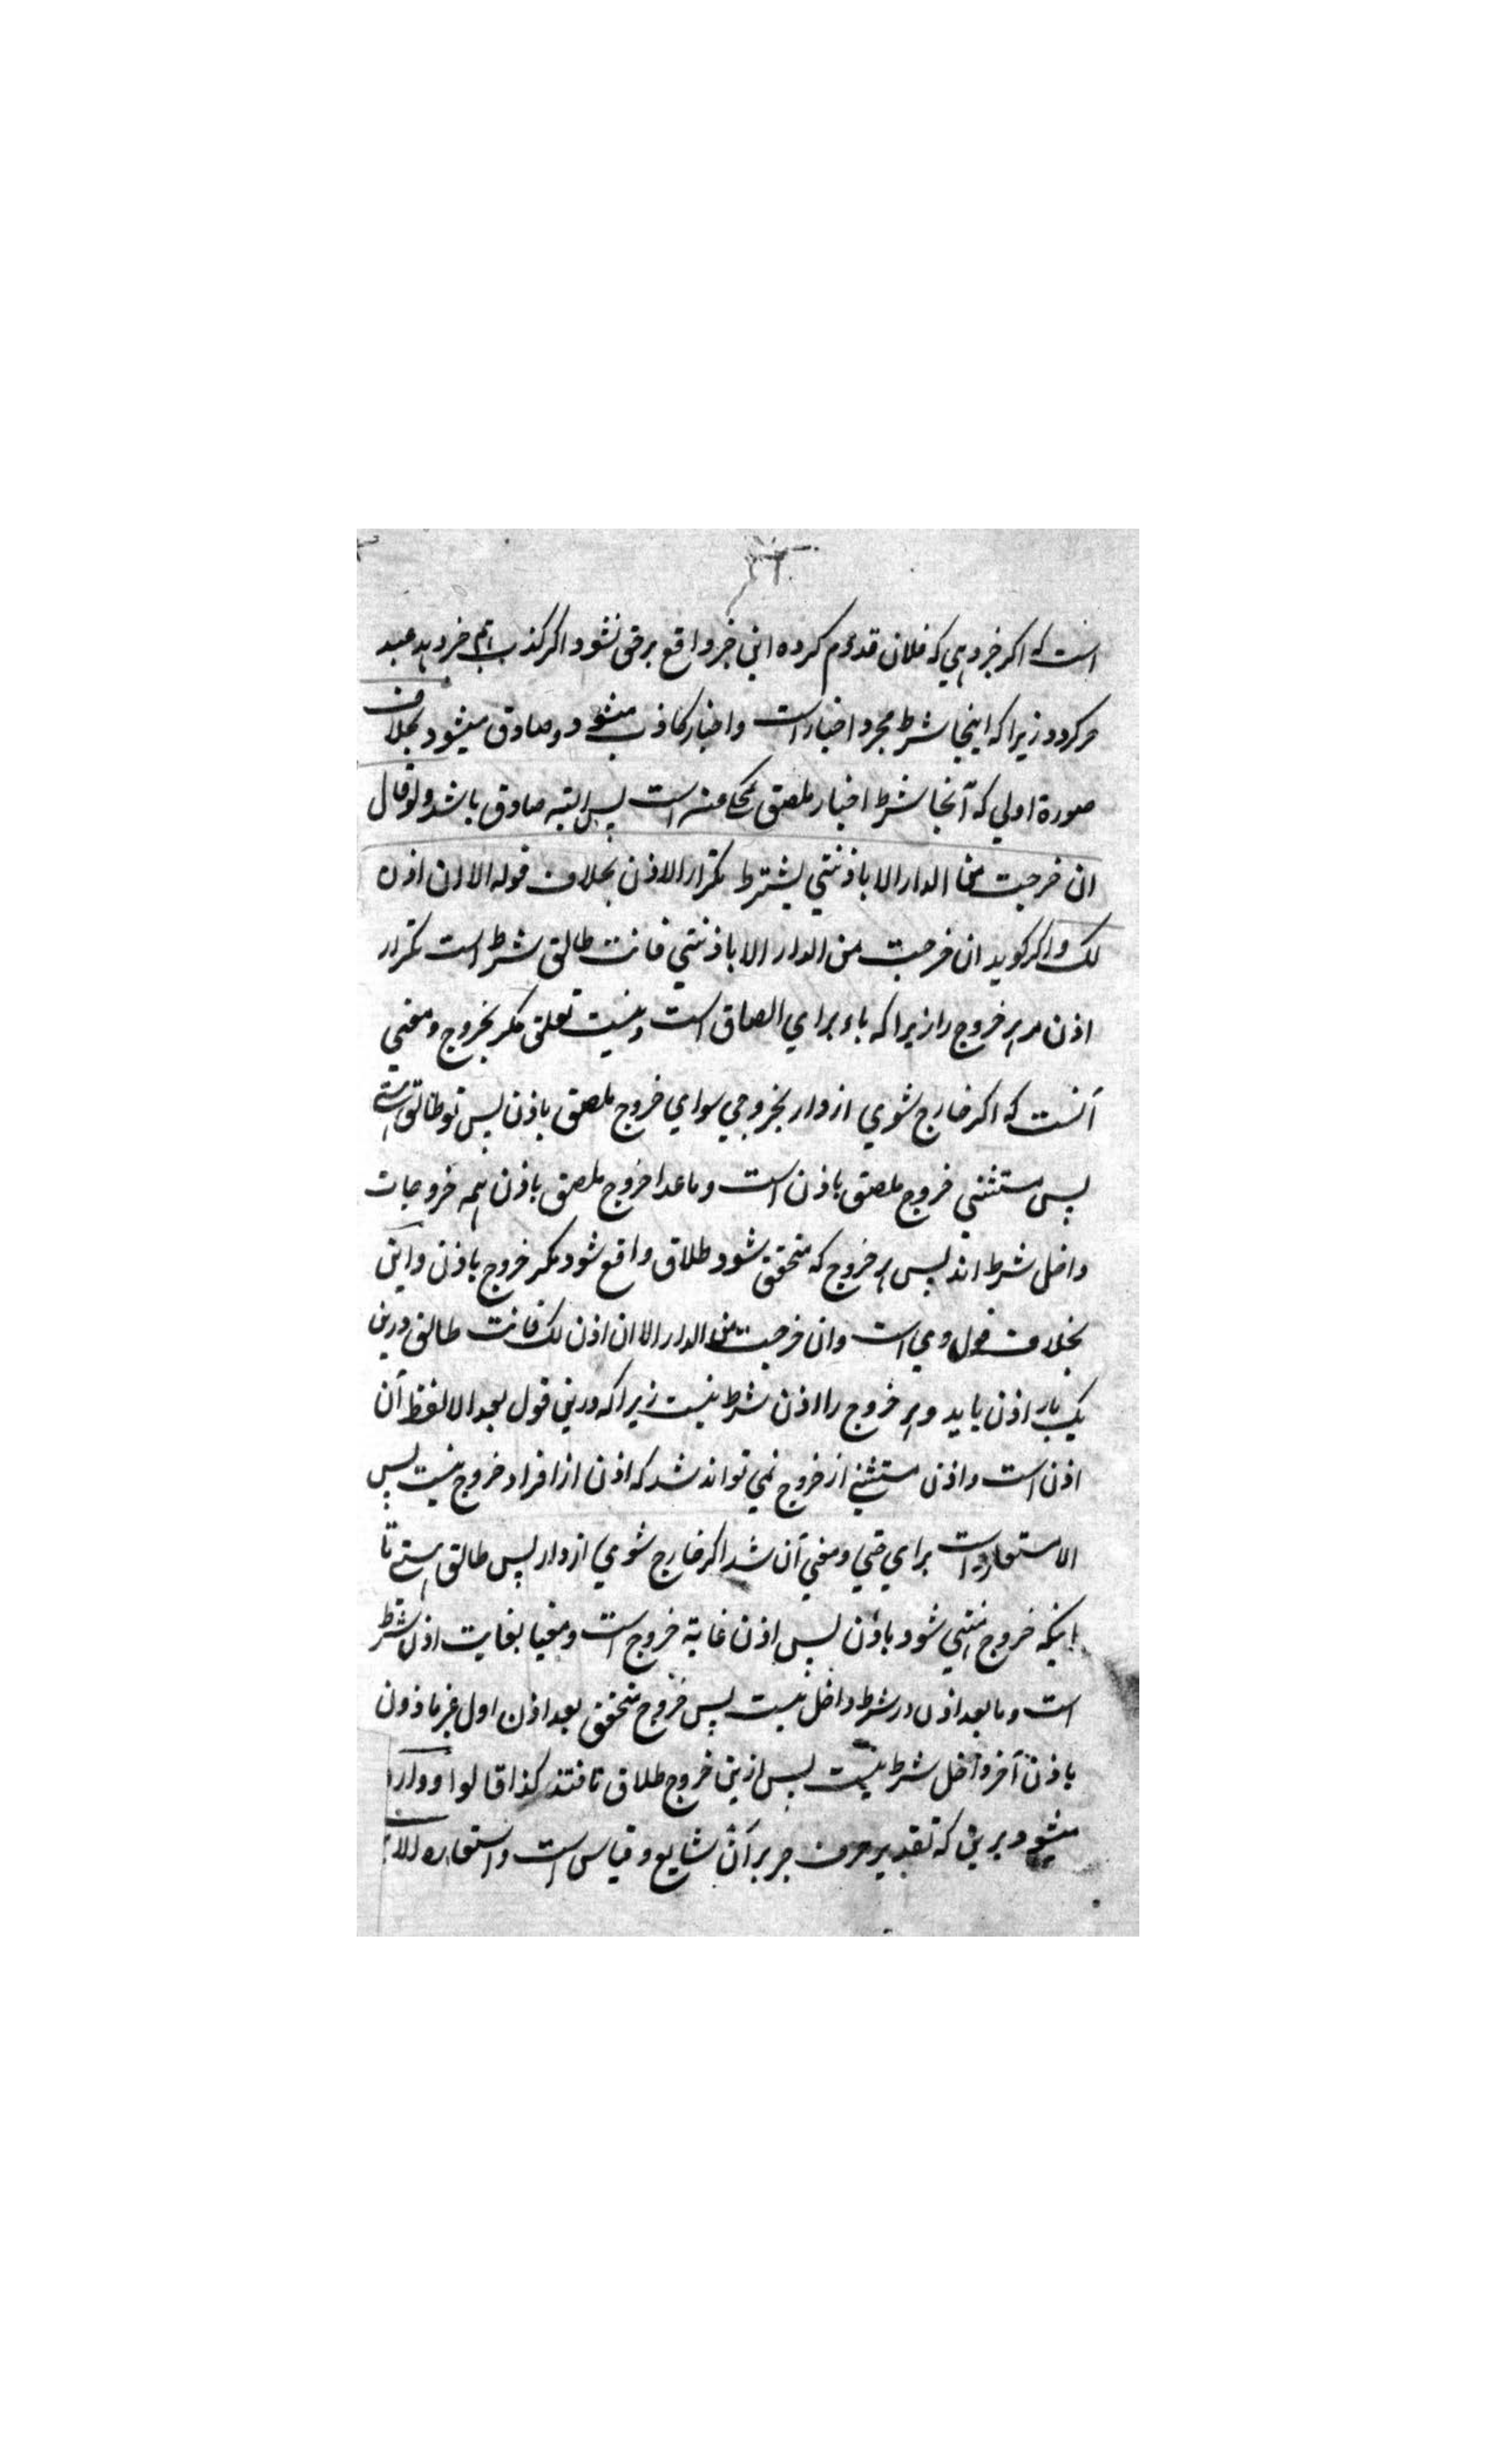 است که اکر خبر دهی که فلان قدوم کرده این خبر واقع بر حق نشود اکر کذب هم خبر دهد عبد
حر کردد زیرا که اینجا شرط مجرد اخبار است و اخبار کاذب میشود و صادق میشود بخلاف
صورة اولی که آنجا شرط اخبار ملصق است پس البته صادق باشد ولو قال
ان خرجت من الدار الا باذنی یشترط تکرار الاذن بخلاف قوله الا ان اذن
لک و اکر کوید ان خرجت من الدار الا باذنی فانت طالق شرط است تکرار
اذن مر هر خروج را زیرا که باء برای الصاق است و نیست تعلق مکر بخروج و معنی
آنست که اکر خارج شوی از دار بخروجی سوای خروج ملصق باذن پس تو طالق هستی
پس مستثنی خروج ملصق باذن است و ما عدا خروج ملصق باذن همه خروجات
داخل شرط اند پس هر خروج که متحقق شود طلاق واقع شود مکر خروج باذن و این
بخلاف قول وی است وان خرجت من الدار الا ان اذن لک فانت طالق درین
یک بار اذن باید و هر خروج را اذن شرط نیست زیرا که درین قول بعد الا لفظ آن
اذن است و اذن مستثنی از خروج نمی تواند شد که اذن از افراد خروج نیست پس
الا مستعار است برای حتی و معنی آن شد اکر خارج شوی از دار پس طالق هستی تا
اینکه خروج منتهی شود باذن پس اذن غایة خروج است و مغیا بغایت اذن شرط
است و ما بعد اذن در شرط داخل نیست پس خروج متحقق بعد اذن اول غیر ماذون
باذن آخر داخل شرط نیست پس ازین خروج طلاق نافتد کذا قالوا و وارد
میشود برین که تقدیر حرف جر بر آن شایع و قیاس است و استعاره الا